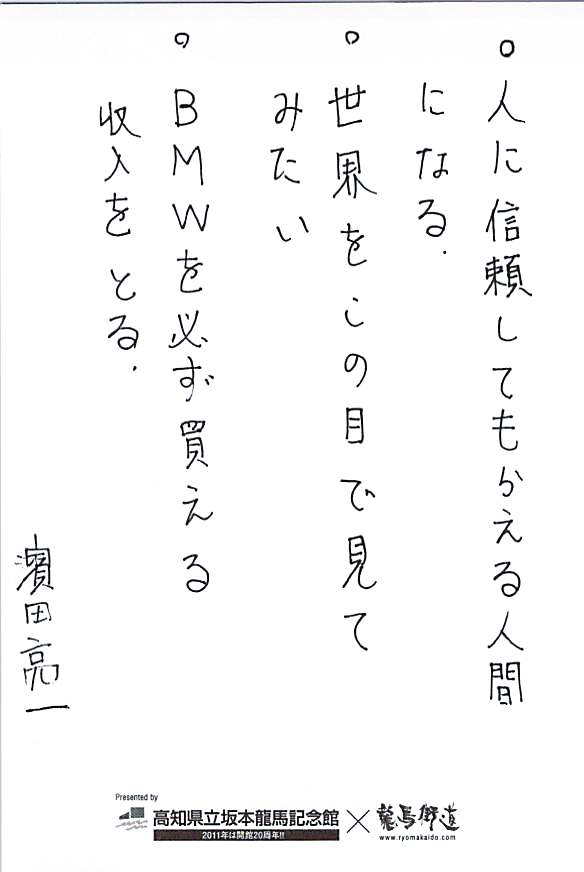 ○人に信頼してもらえる人間
になる.
○世界をこの目で見て
みたい
○BMWを必ず買える
収入をとる.
濱田亮一
Presented by
高知県立坂本龍馬記念館×龍馬街道
2011年は開館20周年!!
www.ryomakaido.com